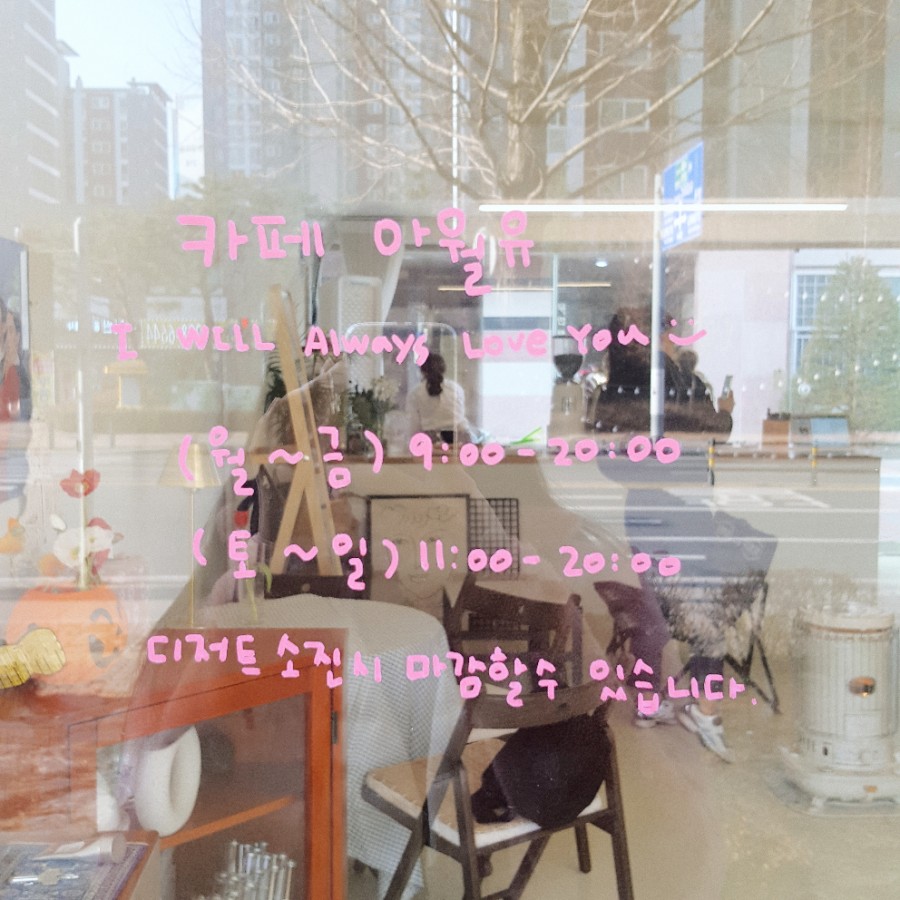 카페 아월유
I WILL Always Love You
(월~금) 9:00-20:00
(토~일) 11:00-20:00
디저트 소진시 마감할수 있습니다.